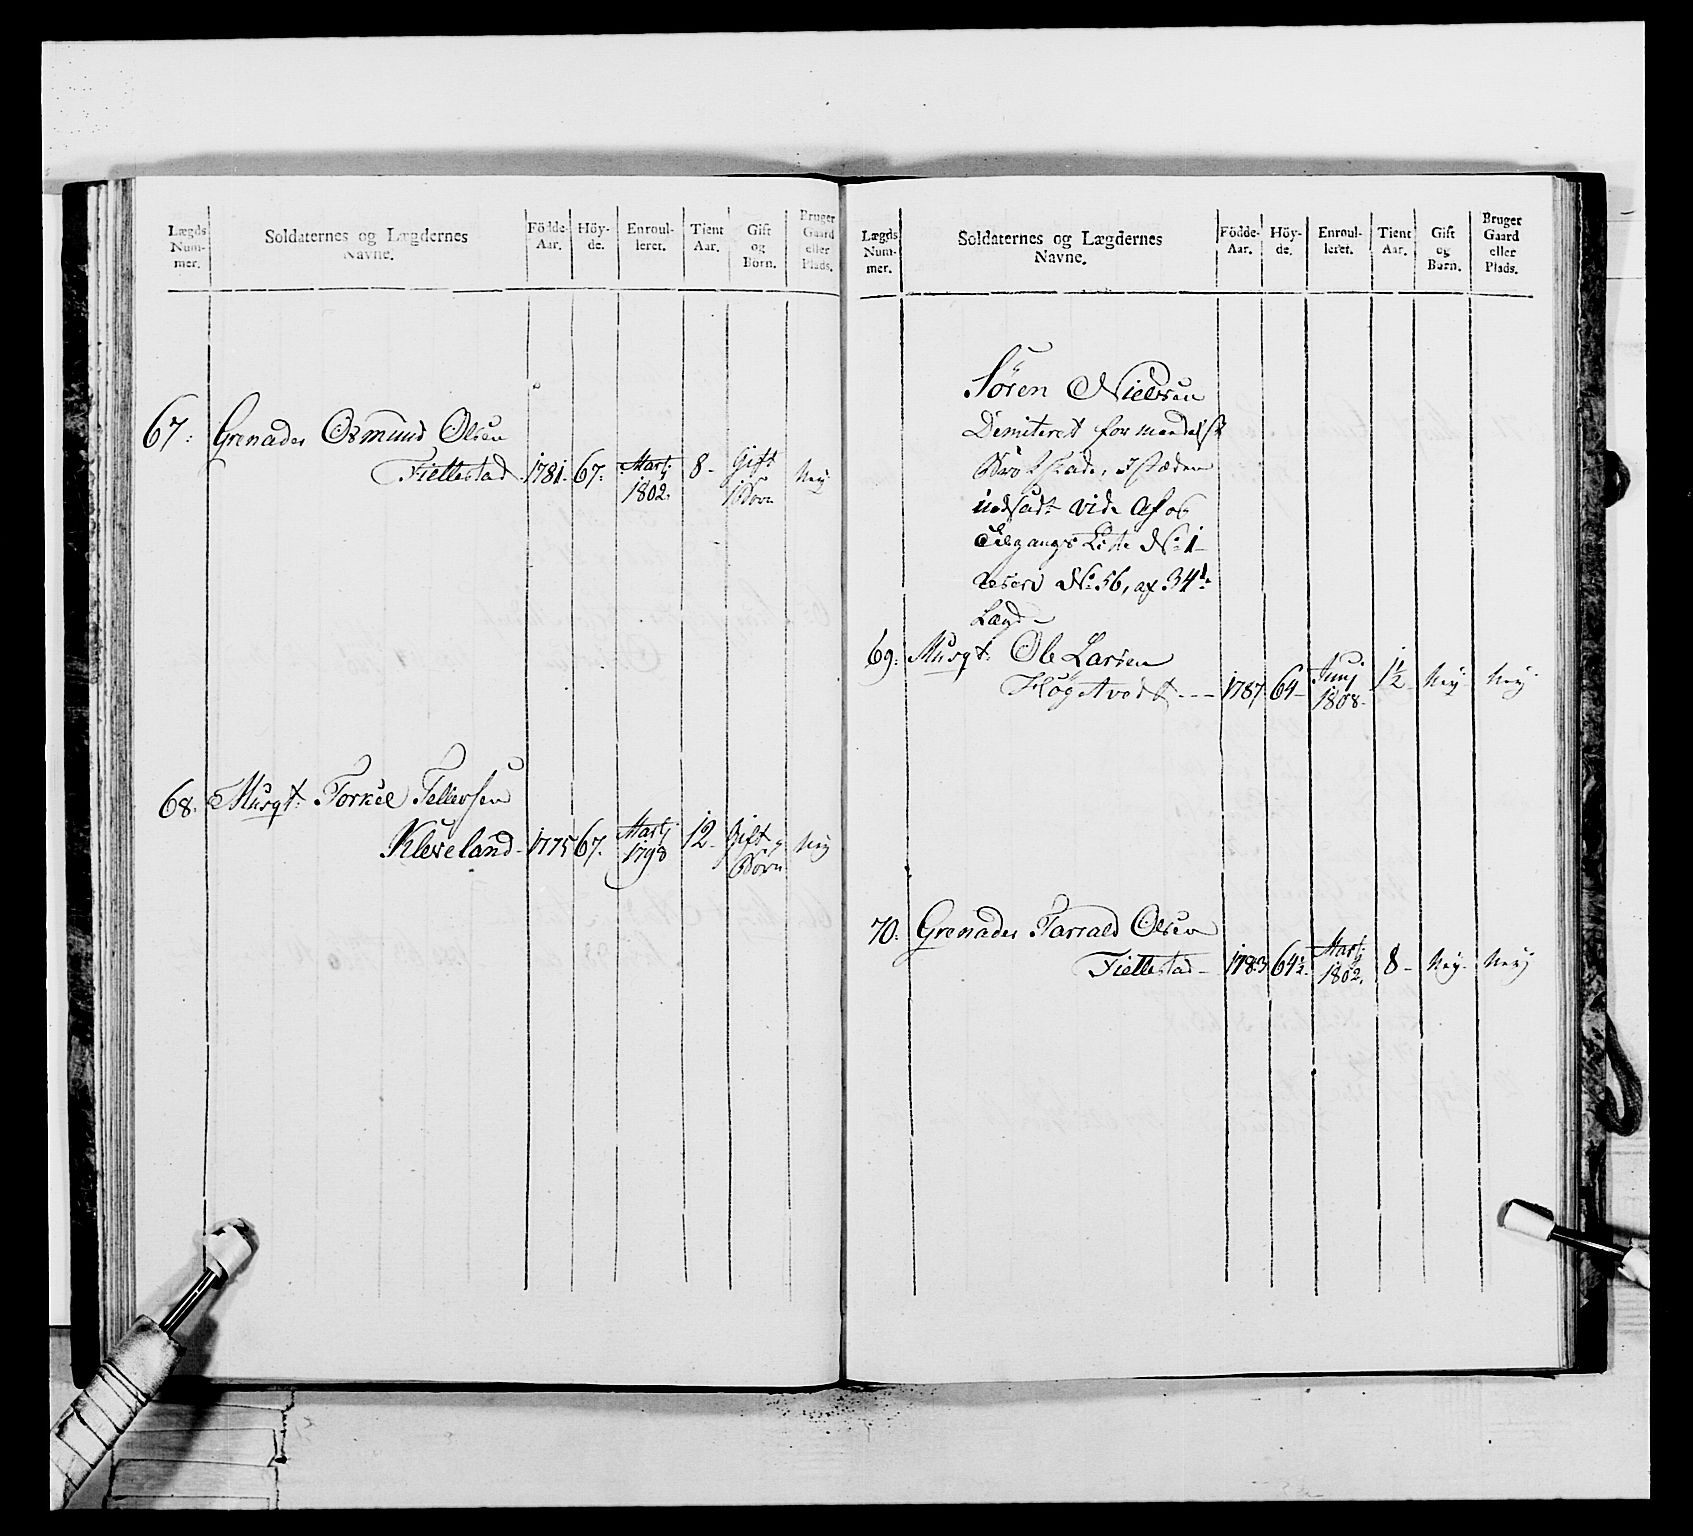 Lægds
Num-
mer.
Soldaternes og Lægdernes
Navne.
Födde-
Aar.
Höy-
de.
Enroul-
leret.
Tient
Aar.
Gift
og
Börn.
Bruger
Gaard
eller
Plads.
67. Grenader Osmund Olsen
Fiellestad 1781. 67. Martj 1802. 8 - Gift 1 Börn Ney
68. Musqt: Torkel Tellevsen
Kleveland - 1775 67. Martj 1798 12 - Gift Börn Ney
Lægds
Num-
mer.
Soldaternes og Lægdernes
Navne.
Födde-
Aar.
Höy-
de.
Enroul-
leret.
Tient
Aar.
Gift
og
Börn.
Bruger
Gaard
eller
Plads.
Sören Nielsen
Demiteret for
Brökskade, Istæden
indsadt vide Af og
Tilgangs Liste No. 1
No. 56, af 34de
Lægd -
69. Musqt: Ole Larsen
Högstvedt - - - 1787. 64 - Junj 1808. 1½ - Ney - Ney
70. Grenader Tarrald Olsen
Fiellestad - 1783 64½. Martj 1802. 8 - Ney - Ney